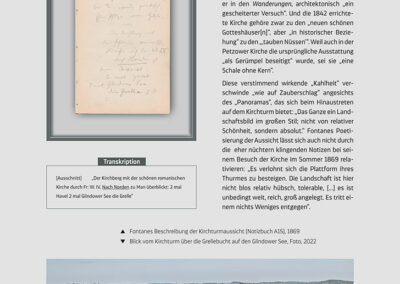 er in den Wanderungen, architektonisch „ein
gescheiterter Versuch". Und die 1842 errichte-
te Kirche gehöre zwar zu den „neuen schönen
Gotteshäuser[n]", aber „in historischer Bezie-
hung" zu den „,tauben Nüssen'". Weil auch in der
Petzower Kirche die ursprüngliche Ausstattung
„als Gerümpel beseitigt" wurde, sei sie „eine
Schale ohne Kern".
Diese verstimmend wirkende „Kahlheit" ver-
schwinde „wie auf Zauberschlag" angesichts
des „Panoramas", das sich beim Hinaustreten
auf dem Kirchturm bietet: „Das Ganze ein Land-
schaftsbild im großen Stil; nicht von relativer
Schönheit, sondern absolut." Fontanes Poeti-
sierung der Aussicht lässt sich auch nicht durch
die eher nüchtern klingenden Notizen bei sei-
nem Besuch der Kirche im Sommer 1869 rela-
tivieren: „Es verlohnt sich die Plattform ihres
Thurmes zu besteigen. Die Landschaft ist hier
nicht blos relativ hübsch, tolerable, [...] es ist
unbedingt weit, reich, groß angelegt. Es tritt ei-
nem nichts Weniges entgegen".
Transkription
[Ausschnitt] „Der Kirchberg mit der schönen romanischen
Kirche durch Fr: W. IV. Nach Norden zu Man überblickt: 2 mal
Havel 2 mal Glindower See die Grelle"
▲ Fontanes Beschreibung der Kirchturmaussicht (Notizbuch A15), 1869
▼ Blick vom Kirchturm über die Grellebucht auf den Glindower See, Foto, 2022